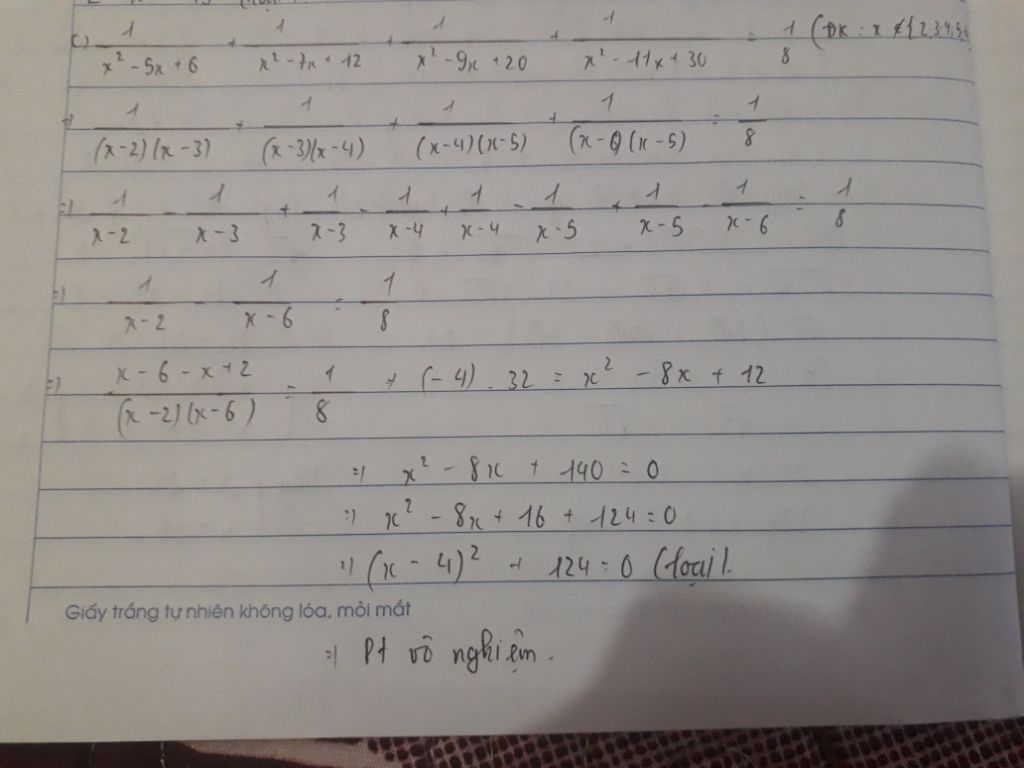 c) 1/(x² - 5x + 6) + 1/(x² - 7x + 12) + 1/(x² - 9x + 20) + 1/(x² - 11x + 30) = 1/8 (ĐK : x ∉ {2,3,4,5,6
=) 1/((x-2)(x-3)) + 1/((x-3)(x-4)) + 1/((x-4)(x-5)) + 1/((x-6)(x-5)) = 1/8
=) 1/(x-2) - 1/(x-3) + 1/(x-3) - 1/(x-4) + 1/(x-4) - 1/(x-5) + 1/(x-5) - 1/(x-6) = 1/8
=) 1/(x-2) - 1/(x-6) = 1/8
=) (x - 6 - x + 2)/((x-2)(x-6)) = 1/8 → (-4) . 32 = x² - 8x + 12
=) x² - 8x + 140 = 0
=) x² - 8x + 16 + 124 = 0
=) (x - 4)² + 124 = 0 (loại).
Giấy trắng tự nhiên không lóa, mỏi mắt
=) Pt vô nghiệm.